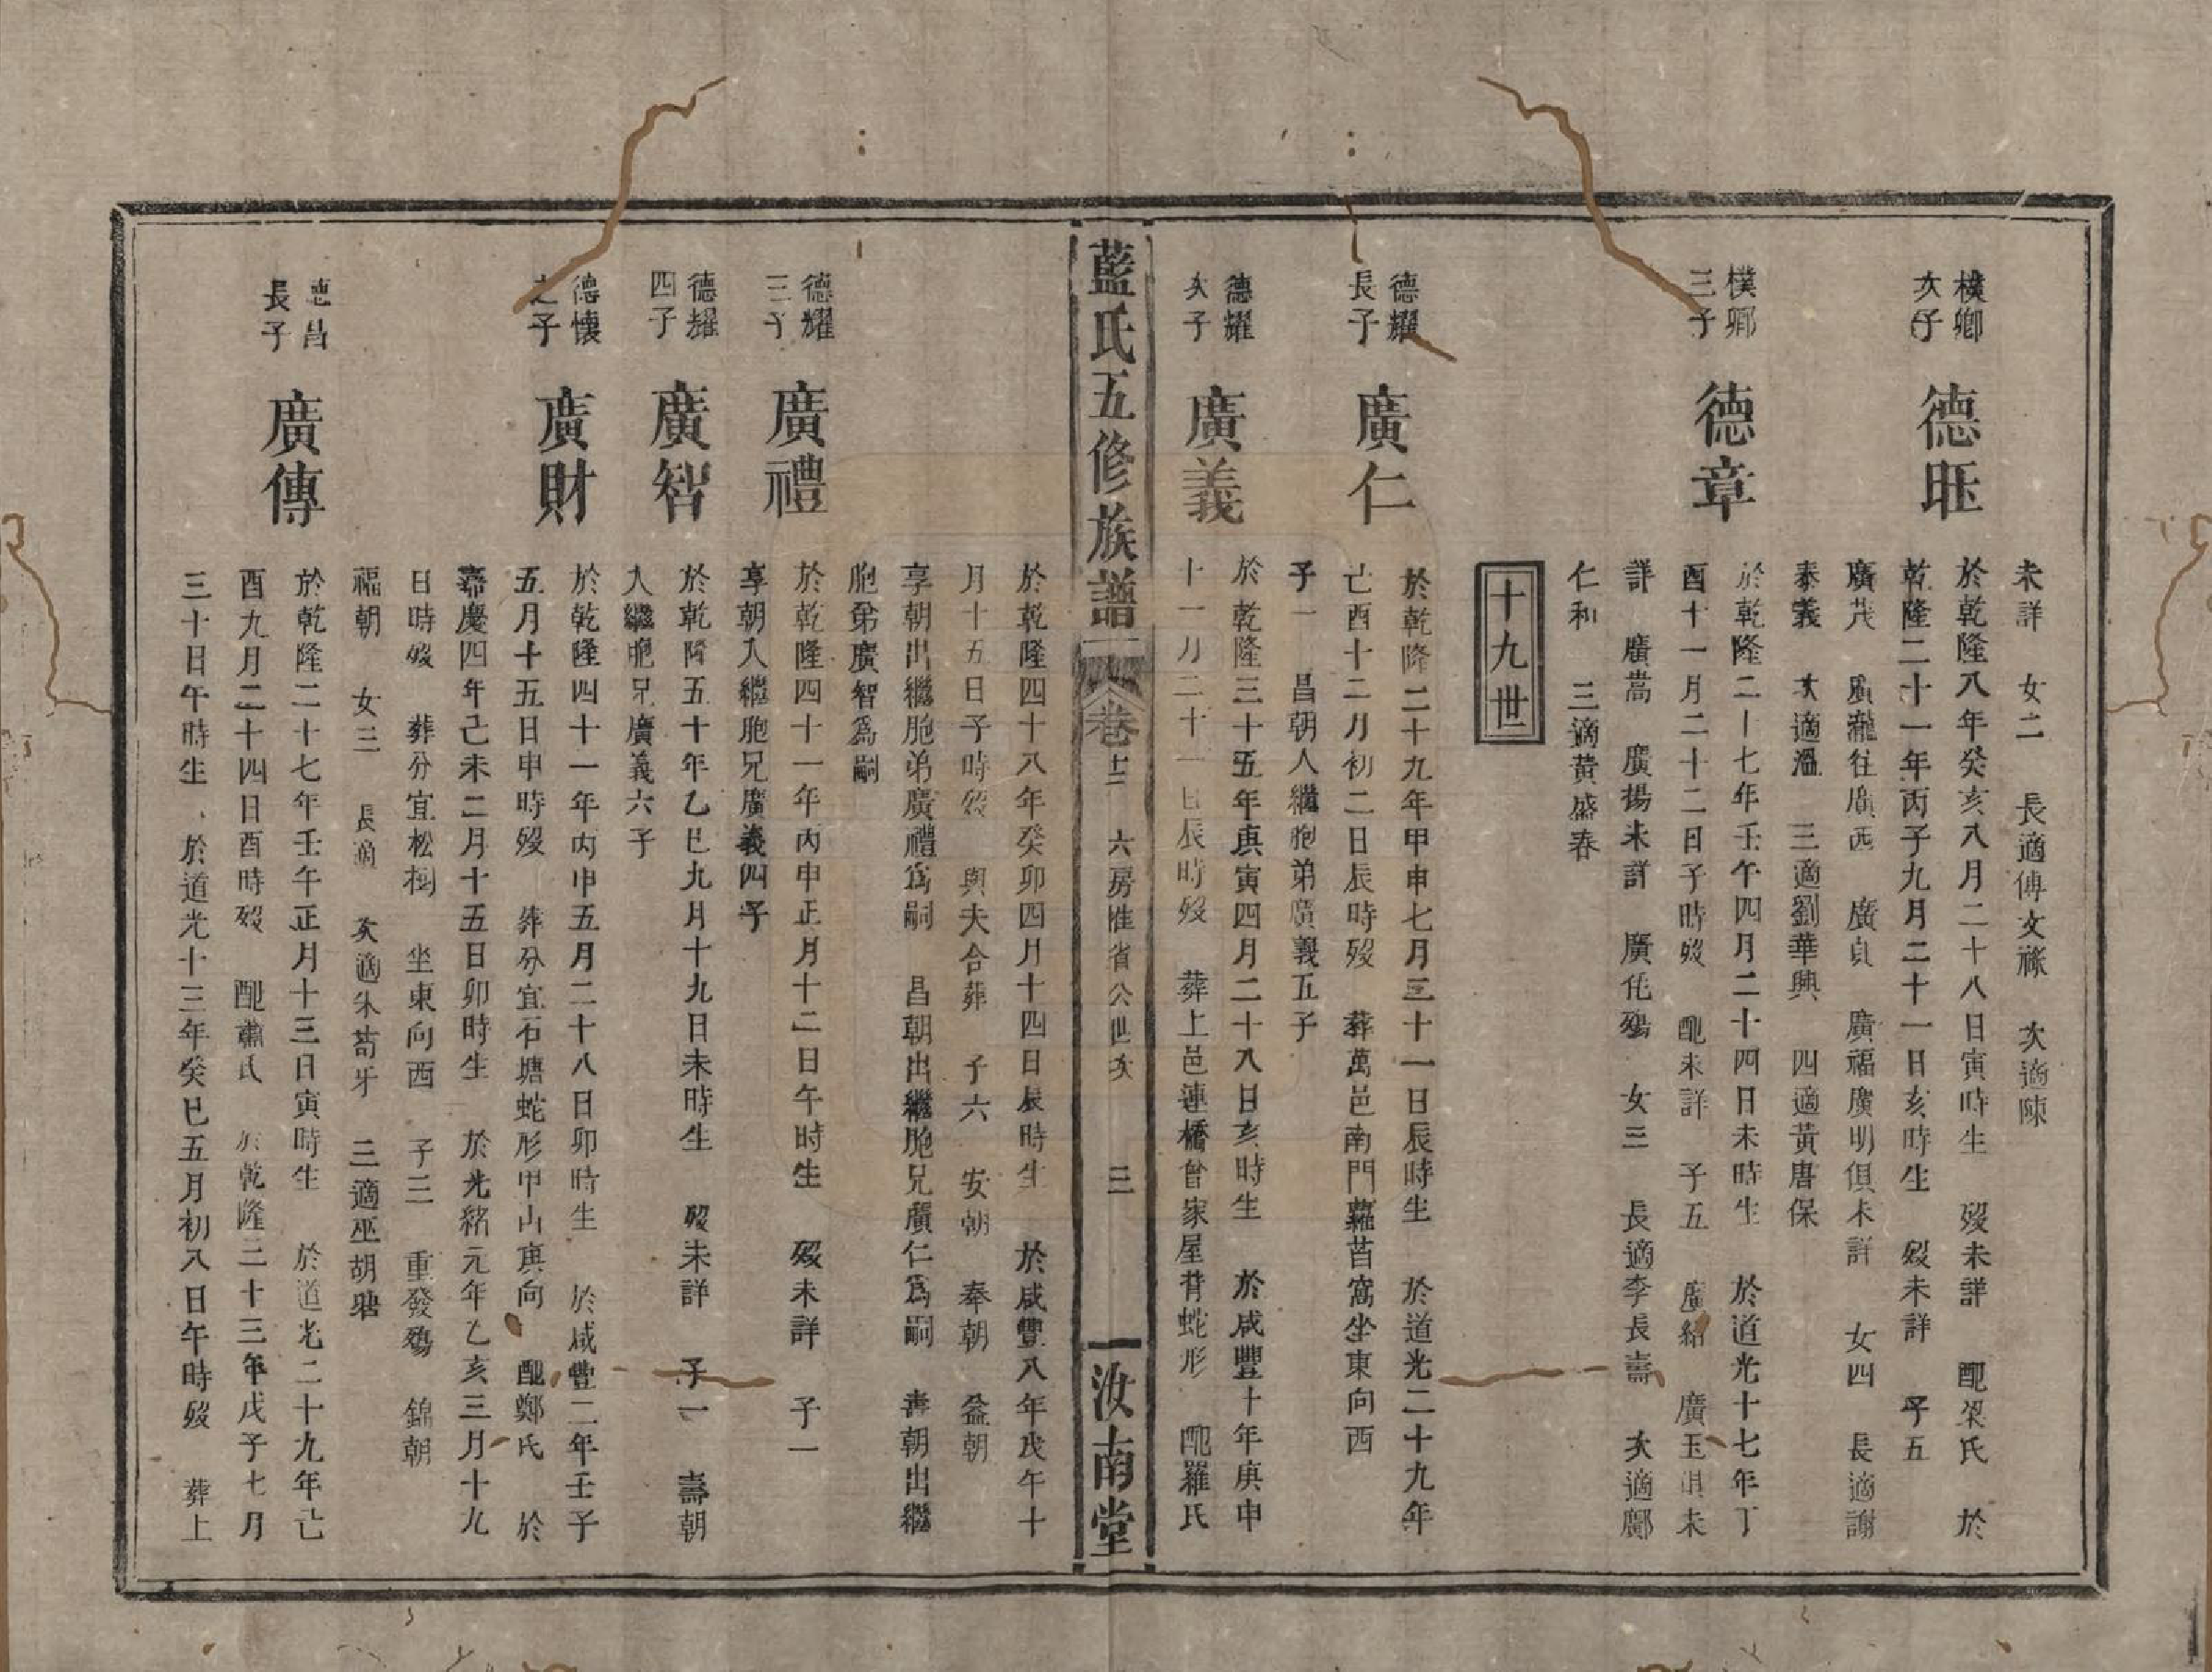 未詳 女二 長適傅文祿 次適陳
樸卿
次子
德旺
於乾隆八年癸亥八月二十八日寅時生 歿未詳 配梁氏 於
乾隆二十一年丙子九月二十一日亥時生 歿未詳 子五
廣茂 廣瀧往廣西 廣貞 廣福廣明俱未詳 女四 長適謝
泰義 次適溫 三適劉華興 四適黃唐保
樸卿
三子
德章
於乾隆二十七年壬午四月二十四日未時生 於道光十七年丁
酉十一月二十二日子時歿 配未詳 子五 廣紹 廣玉俱未
詳 廣嵩 廣揚未詳 廣化殤 女三 長適李長壽 次適鄺
仁和 三適黃盛春
十九世
德耀
長子
廣仁
於乾隆二十九年甲申七月三十一日辰時生 於道光二十九年
己酉十二月初二日辰時歿 葬萬邑南門蘿茞窩坐東向西
子一 昌朝人繼胞弟廣義五子
德耀
次子
廣義
於乾隆三十五年庚寅四月二十八日亥時生 於咸豐十年庚申
十一月二十一日辰時歿 葬上邑連橋曾家屋背蛇形 配羅氏
藍氏五修族譜 卷十二 六房惟省公世次 三 汝南堂
於乾隆四十八年癸卯四月十四日辰時生 於咸豐八年戊午十
月十五日子時歿 與夫合葬 子六 安朝 奉朝 益朝
享朝出繼胞弟廣禮爲嗣 昌朝出繼胞兄廣仁爲嗣 壽朝出繼
胞弟廣智爲嗣
德耀
三子
廣禮
於乾隆四十一年丙申正月十二日午時生 歿未詳 子一
享朝入繼胞兄廣義四子
德耀
四子
廣智
於乾隆五十年乙巳九月十九日未時生 歿未詳 子一 壽朝
入繼胞兄廣義六子
德懷
之子
廣財
於乾隆四十一年丙申五月二十八日卯時生 於咸豐二年壬子
五月十五日申時歿 葬分宜石塘蛇形甲山庚向 配鄭氏 於
嘉慶四年己未二月十五日卯時生 於光緒元年乙亥三月十九
日時歿 葬分宜松樹 坐東向西 子三 重發殤 錦朝
福朝 女三 長適 次適朱苟牙 三適巫胡聘
德昌
長子
廣傳
於乾隆二十七年壬午正月十三日寅時生 於道光二十九年己
酉九月二十四日酉時歿 配蕭氏 於乾隆三十三年戊子七月
三十日午時生 於道光十三年癸巳五月初八日午時歿 葬上